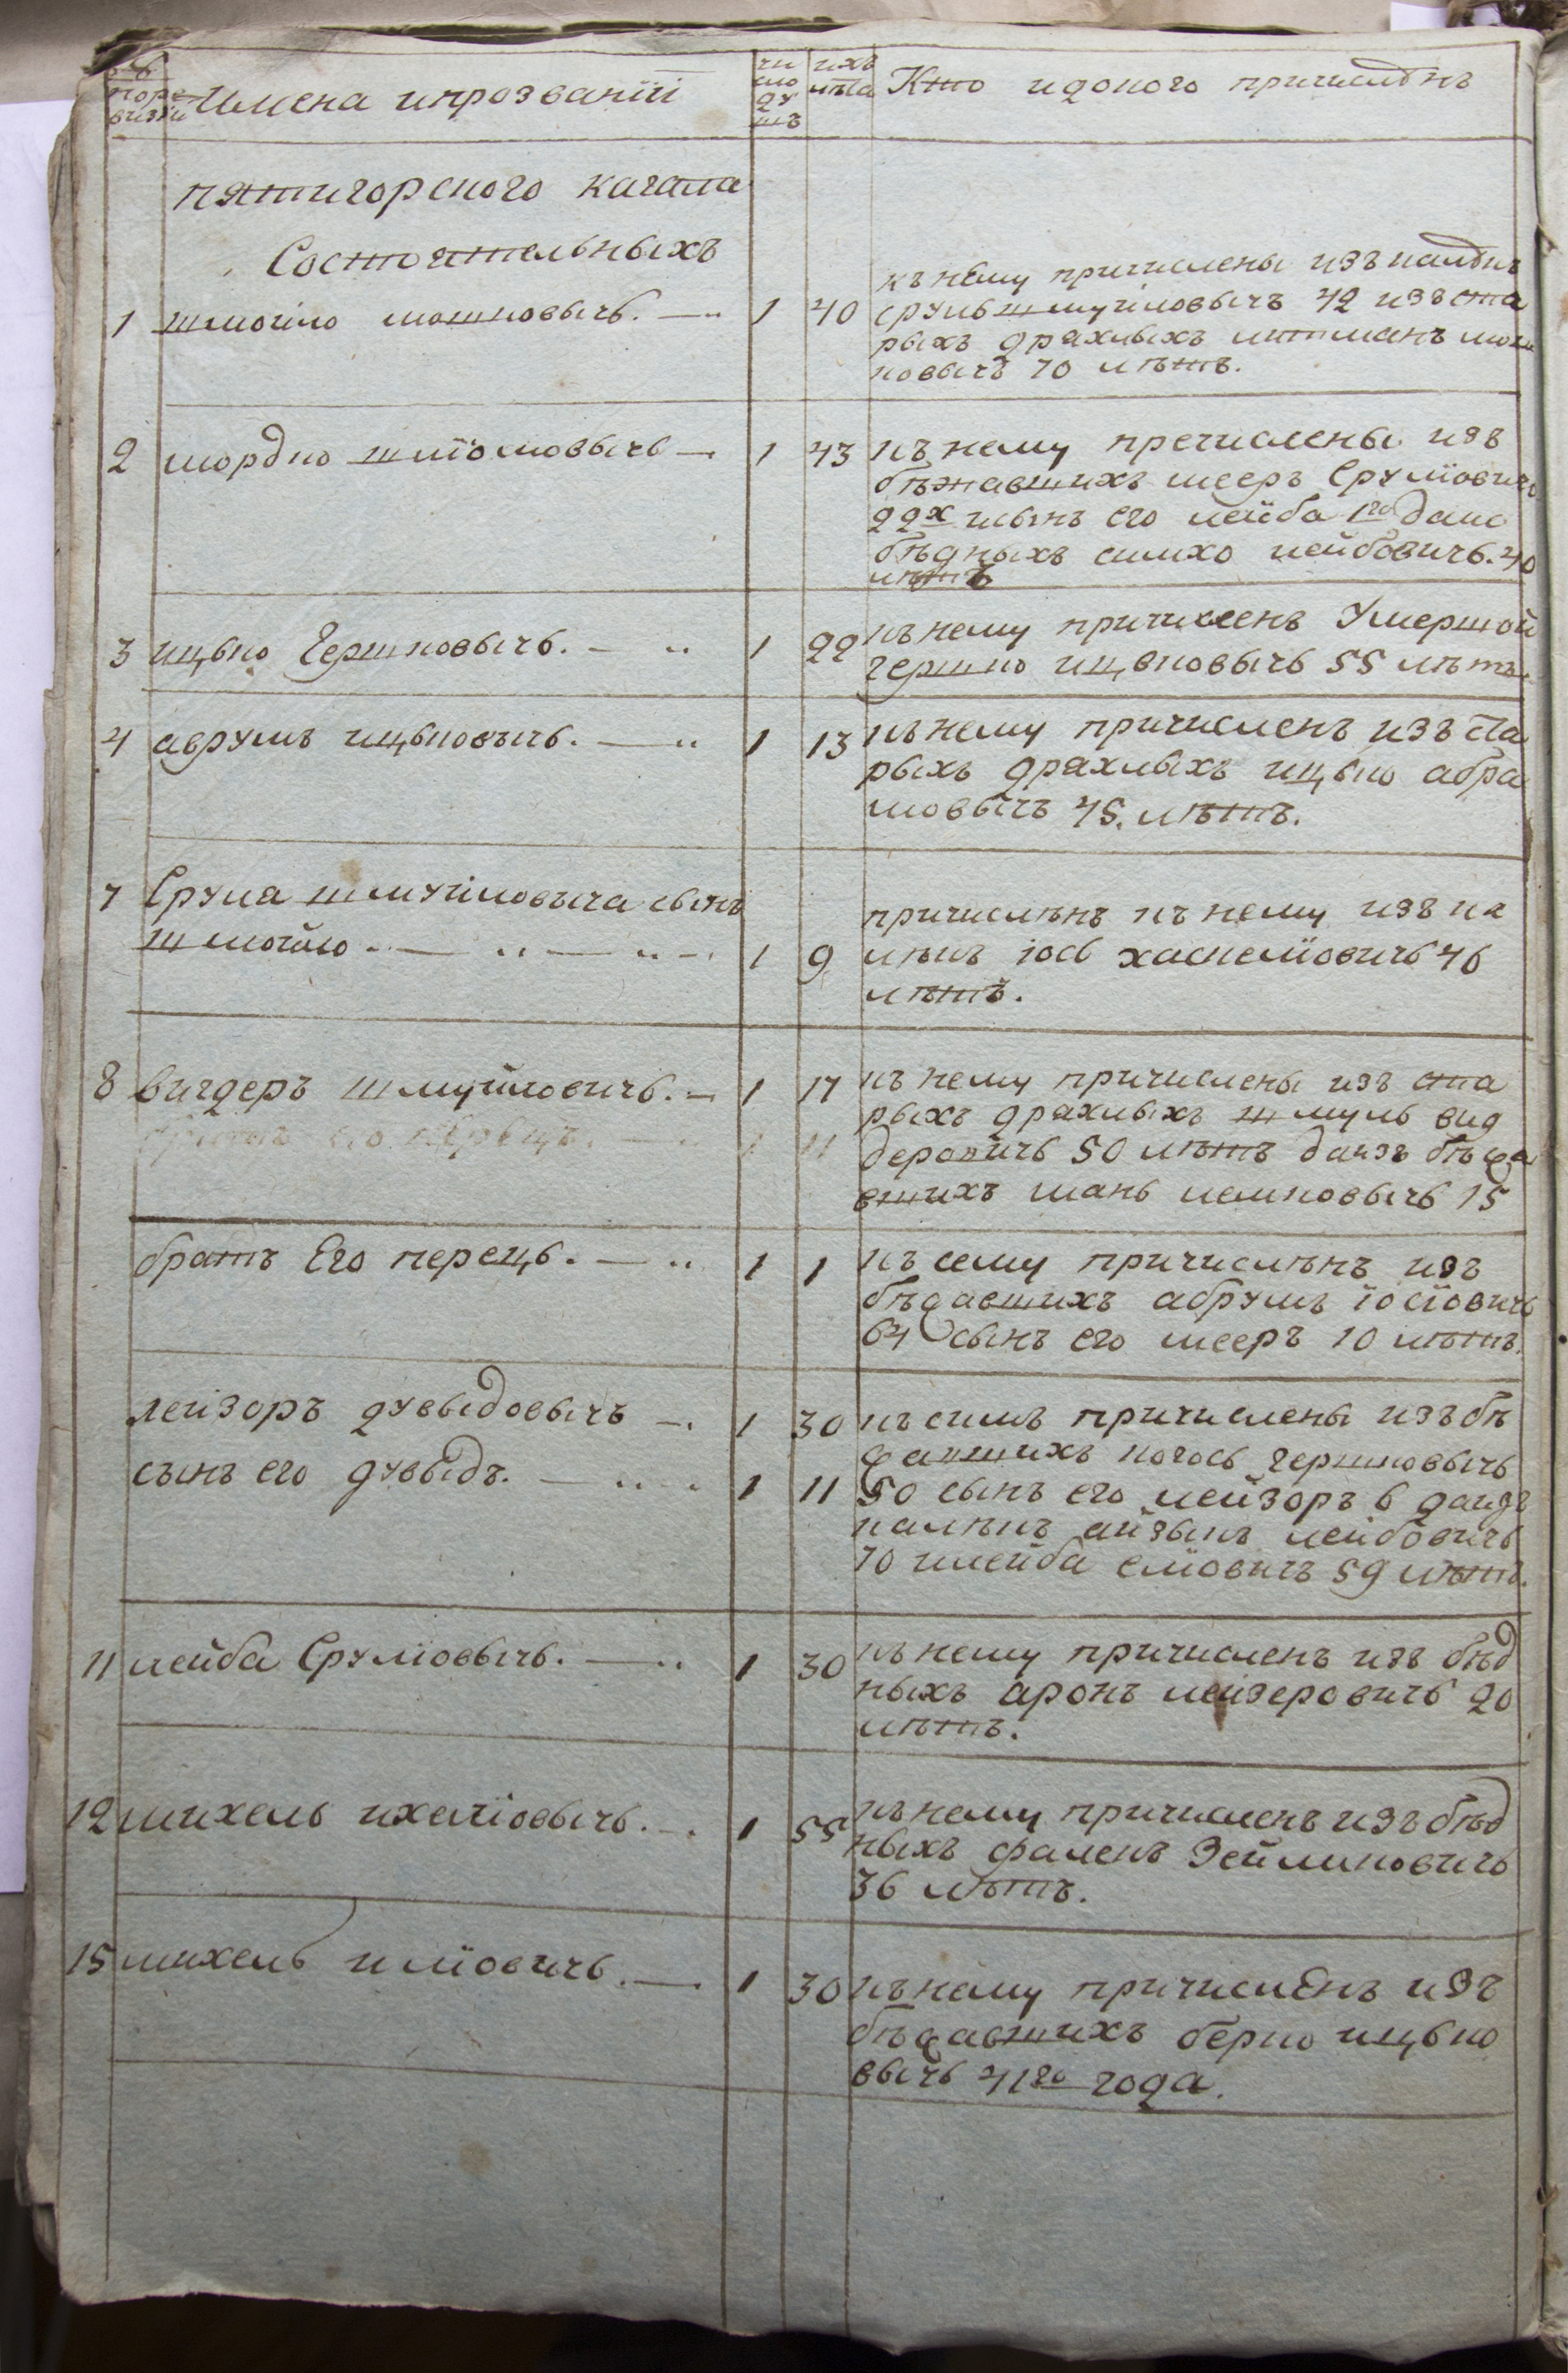 №
поре
визіи
Имена ипрозваніи
чи
сло
ду
шъ
ихъ
лѣта
Кто идокого причисленъ
пятигорского кагала
Состоятельныхъ
1 шмойло мошковычь. 1 40
къ нему причислены изъ калѣкъ
сруль шмуйловычъ 42 изъ ста
рыхъ драхлыхъ
ковычъ 70 лѣтъ.
2 мордко шліомовычь 1 43
къ нему пречислены изъ
бѣжавшихъ меер Сруліович
22х исынъ его лейба 1го даис
бѣдныхъ симхо лейбовичь. 40
лѣтъ
3 ицько Гершковычь. 1 22
къ нему причисленъ Умершой
гершко ицьковычь 55 лѣтъ
4 аврумъ ицьковычь. 1 13
къ нему причисленъ изъ ста
рыхъ драхлыхъ ицько абра
мовычъ 45. лѣтъ.
7 Срула шмуйловыча сынъ
шмойло 1 9
причислѣнъ къ нему изъ ка
лѣкъ іось хаскеліовичь 46
лѣтъ.
8 вигдеръ шмуйловичь. 1 17
1 11
къ нему причислены изъ ста
рыхъ драхлыхъ шмуль виг
деровичь 50 лѣтъ даизъ бѣжа
вшихъ мань лемковычь 15
братъ Его перецъ. 1 1
къ сему причислѣнъ изъ
бѣжавшихъ абрумъ іосіовичь
64 сынъ его мееръ 10 лѣтъ.
лейзоръ дувыдовычъ 1 30
сынъ его дувыдъ. 1 11
къ симъ причислены изъ бѣ
жавшихъ когось гершковычь
50 сынъ его лейзоръ 6 даизъ
калѣкъ айзыкъ лейбовичь
70 илейба еліовичъ 59 лѣтъ.
11 лейба Сруліовычь. 1 30
къ нему причисленъ изъ бѣд
ныхъ аронъ лейзеровичь 20
лѣтъ.
12 михель ихеліовычь. 1 55
къ нему причисленъ изъ бѣд
ныхъ фалекъ Зейликовичь
36 лѣтъ.
15 михель иліовичь. 1 30
къ нему причислѣнъ изъ
бѣжавшихъ берко ицько
вычь 41го года.